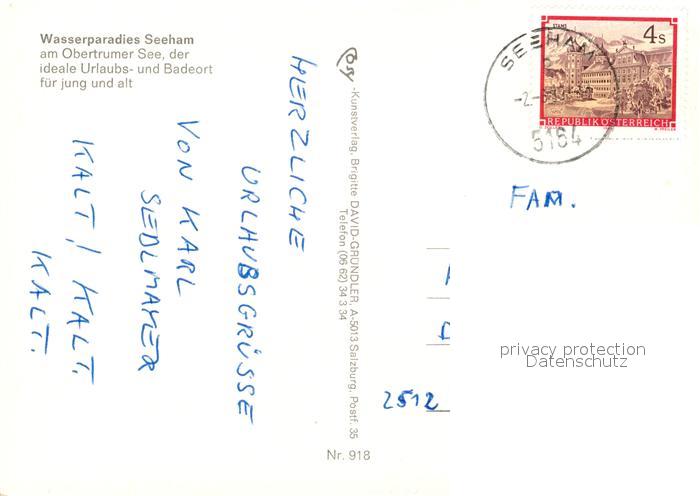 Wasserparadies Seeham
am Obertrumer See, der
ideale Urlaubs- und Badeort
für jung und alt
HERZLICHE
URLAUBSGRÜSSE
VON KARL
SIEDLMAYER
KALT! KALT.
KALT.
Cosy -Kunstverlag, Brigitte DAVID-GRÜNDLER, A-5013 Salzburg, Postf. 35
Telefon (06 62) 34 3 34
Nr. 918
STAMS
4s
REPUBLIK ÖSTERREICH
SEEHAM
5164
FAM.
2512
privacy protection
Datenschutz